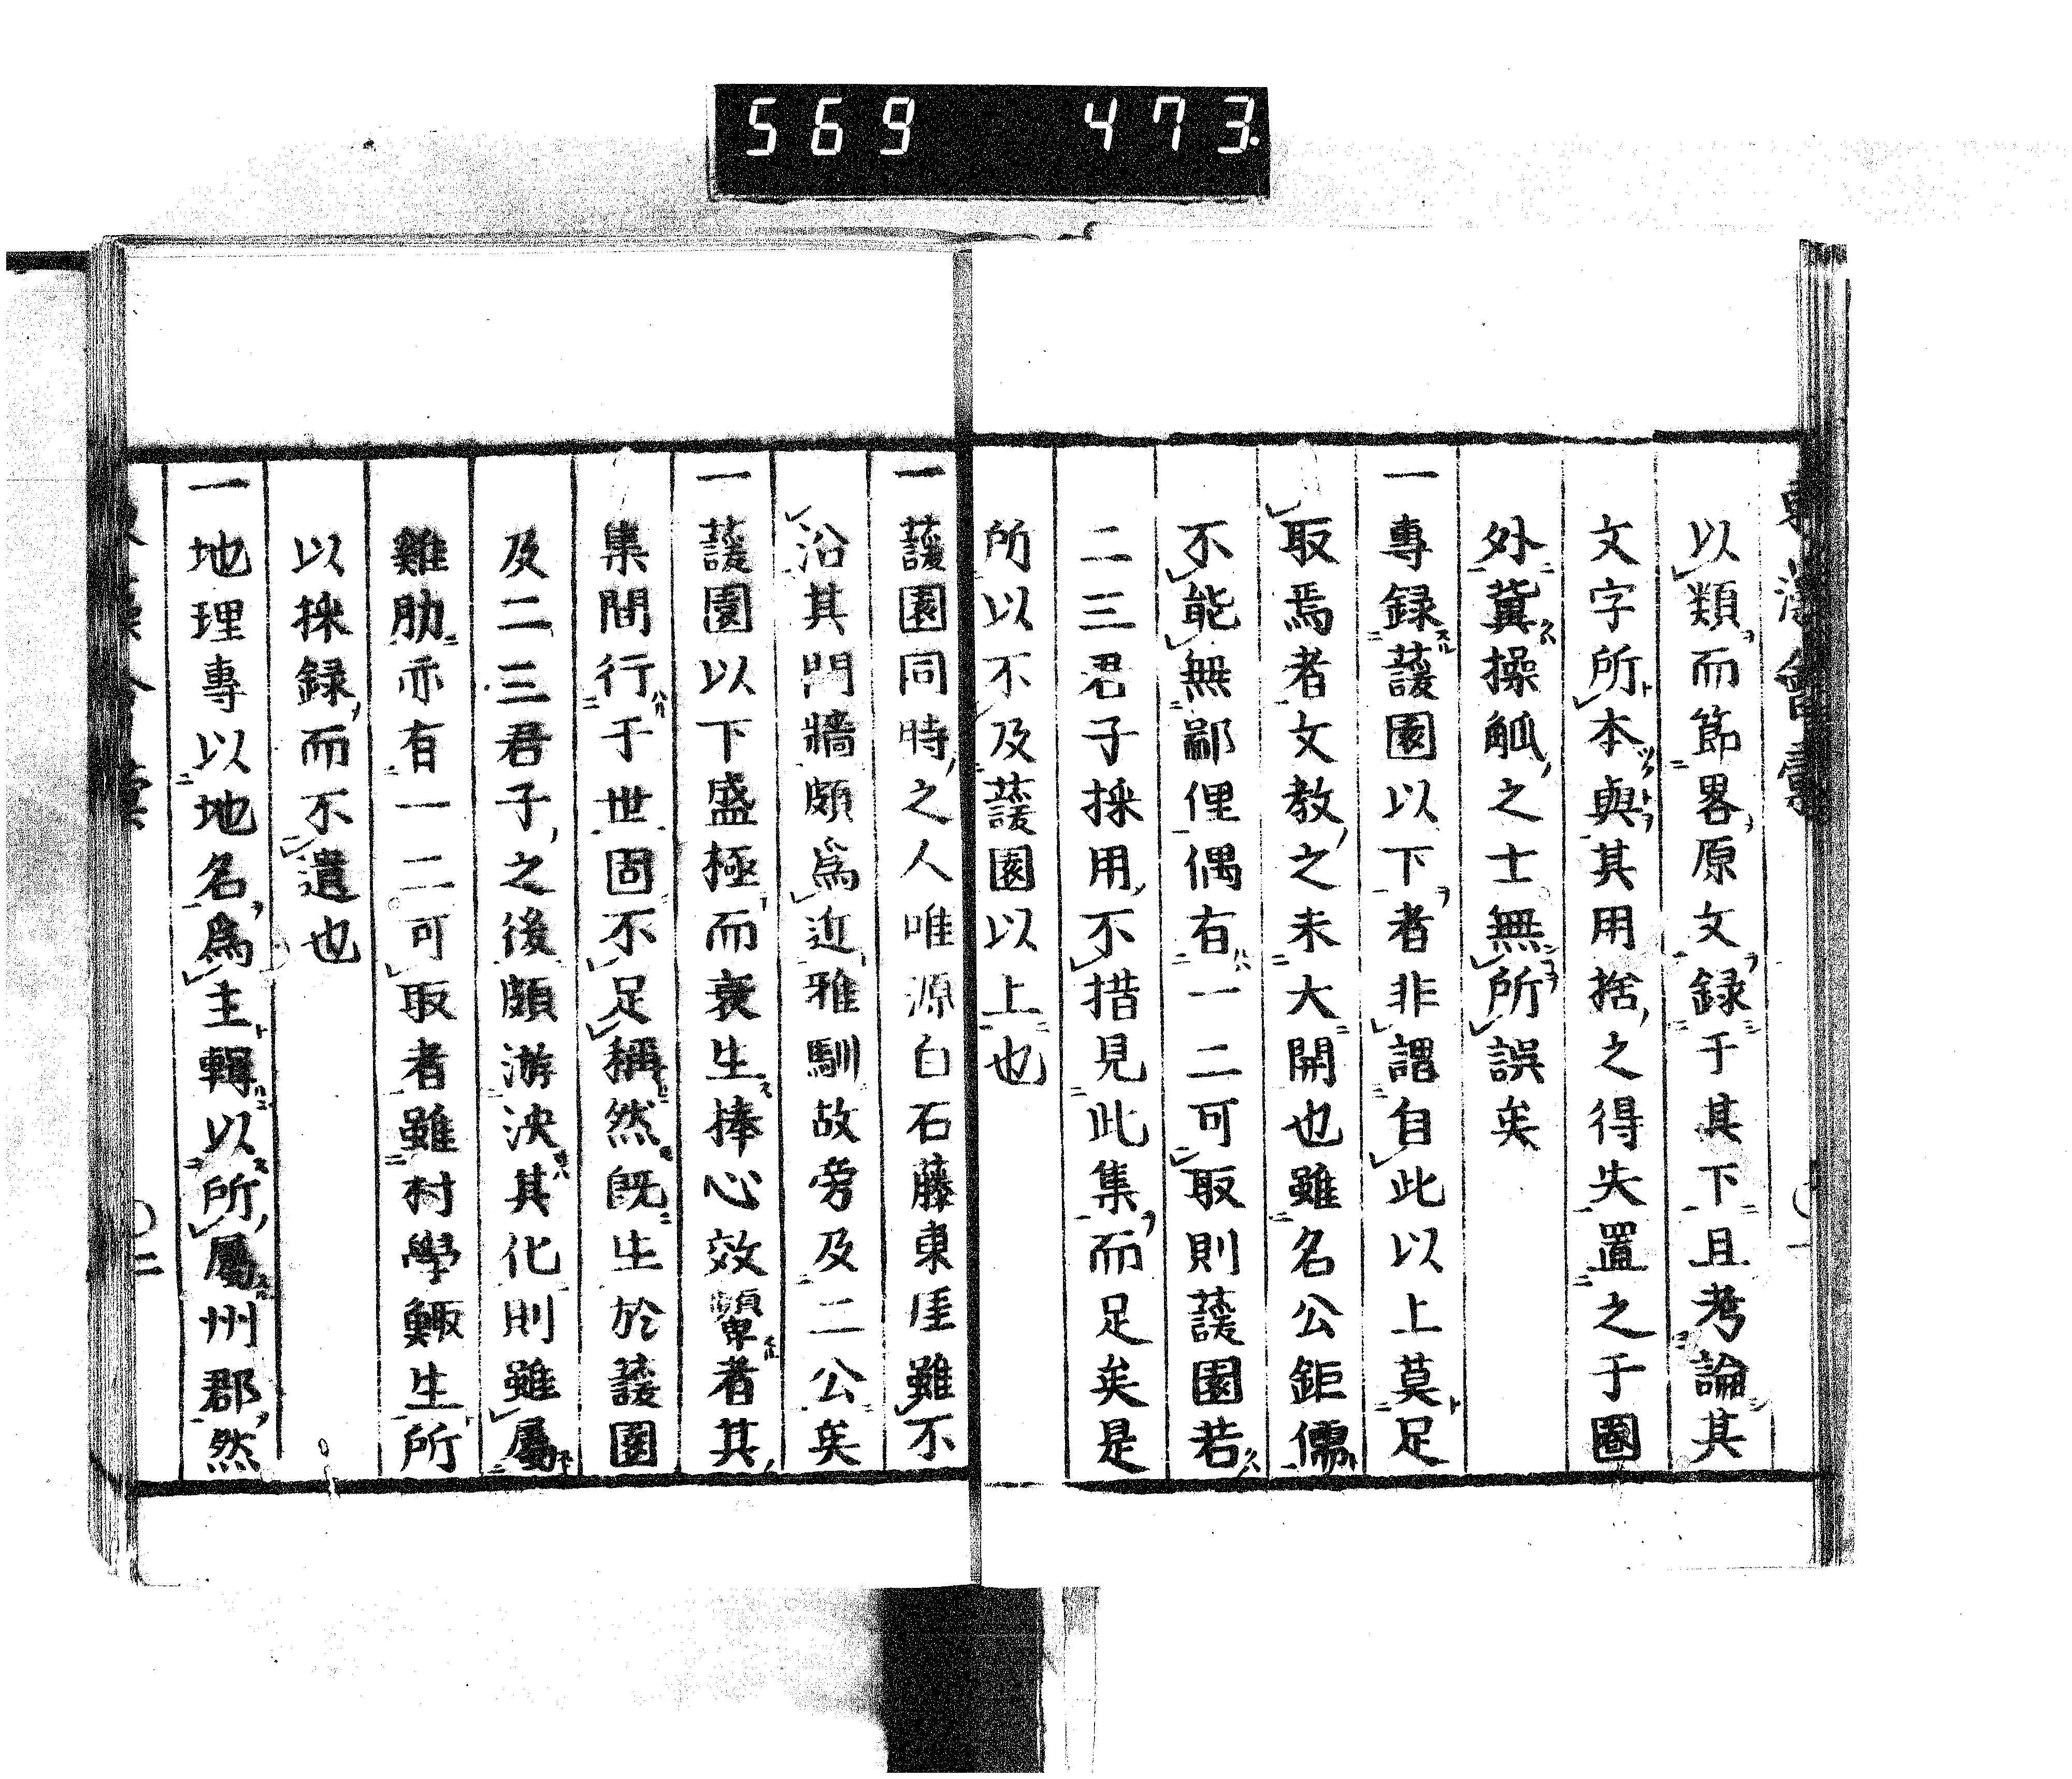 569 473.
以類而節畧原文録于其下且考論其
文字所本與其用捨之得失置之于圏
外冀操觚之士無所誤矣
一専録蘐園以下者非謂自此以上莫足
取焉者文教之未大開也雖名公鉅儒
不能無鄙俚偶有一二可取則蘐園若
二三君子採用不措見此集而足矣是
所以不及蘐園以上也
一蘐園同時之人唯源白石藤東厓雖不
沿其門牆頗爲近雅馴故旁及二公矣
一蘐園以下盛極而衰生捧心效顰者其
集間行于世固不足稱然旣生於蘐園
及二三君子之後頗游泳其化則雖屬
雞肋亦有一二可取者雖村學鯫生所
以採録而不遺也
一地理專以地名爲主輯以所屬州郡然
二